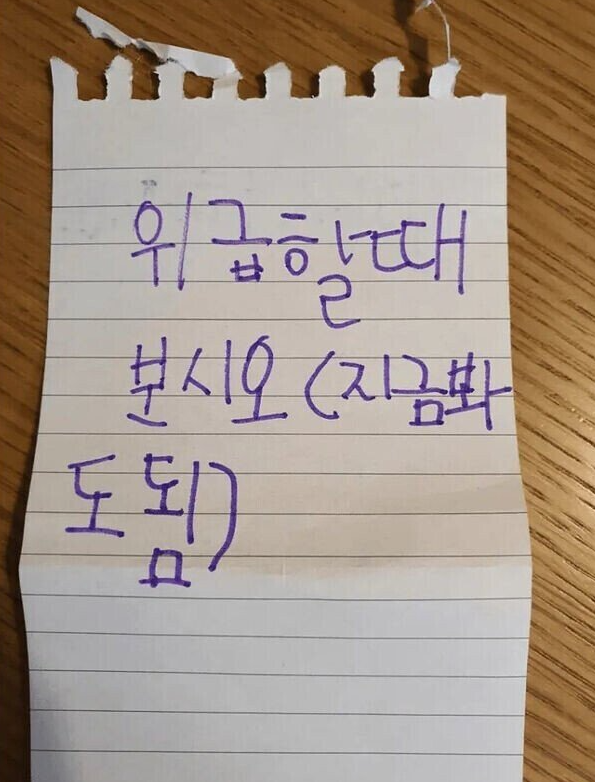 위급할때
보시오 (지금봐
도 됨)